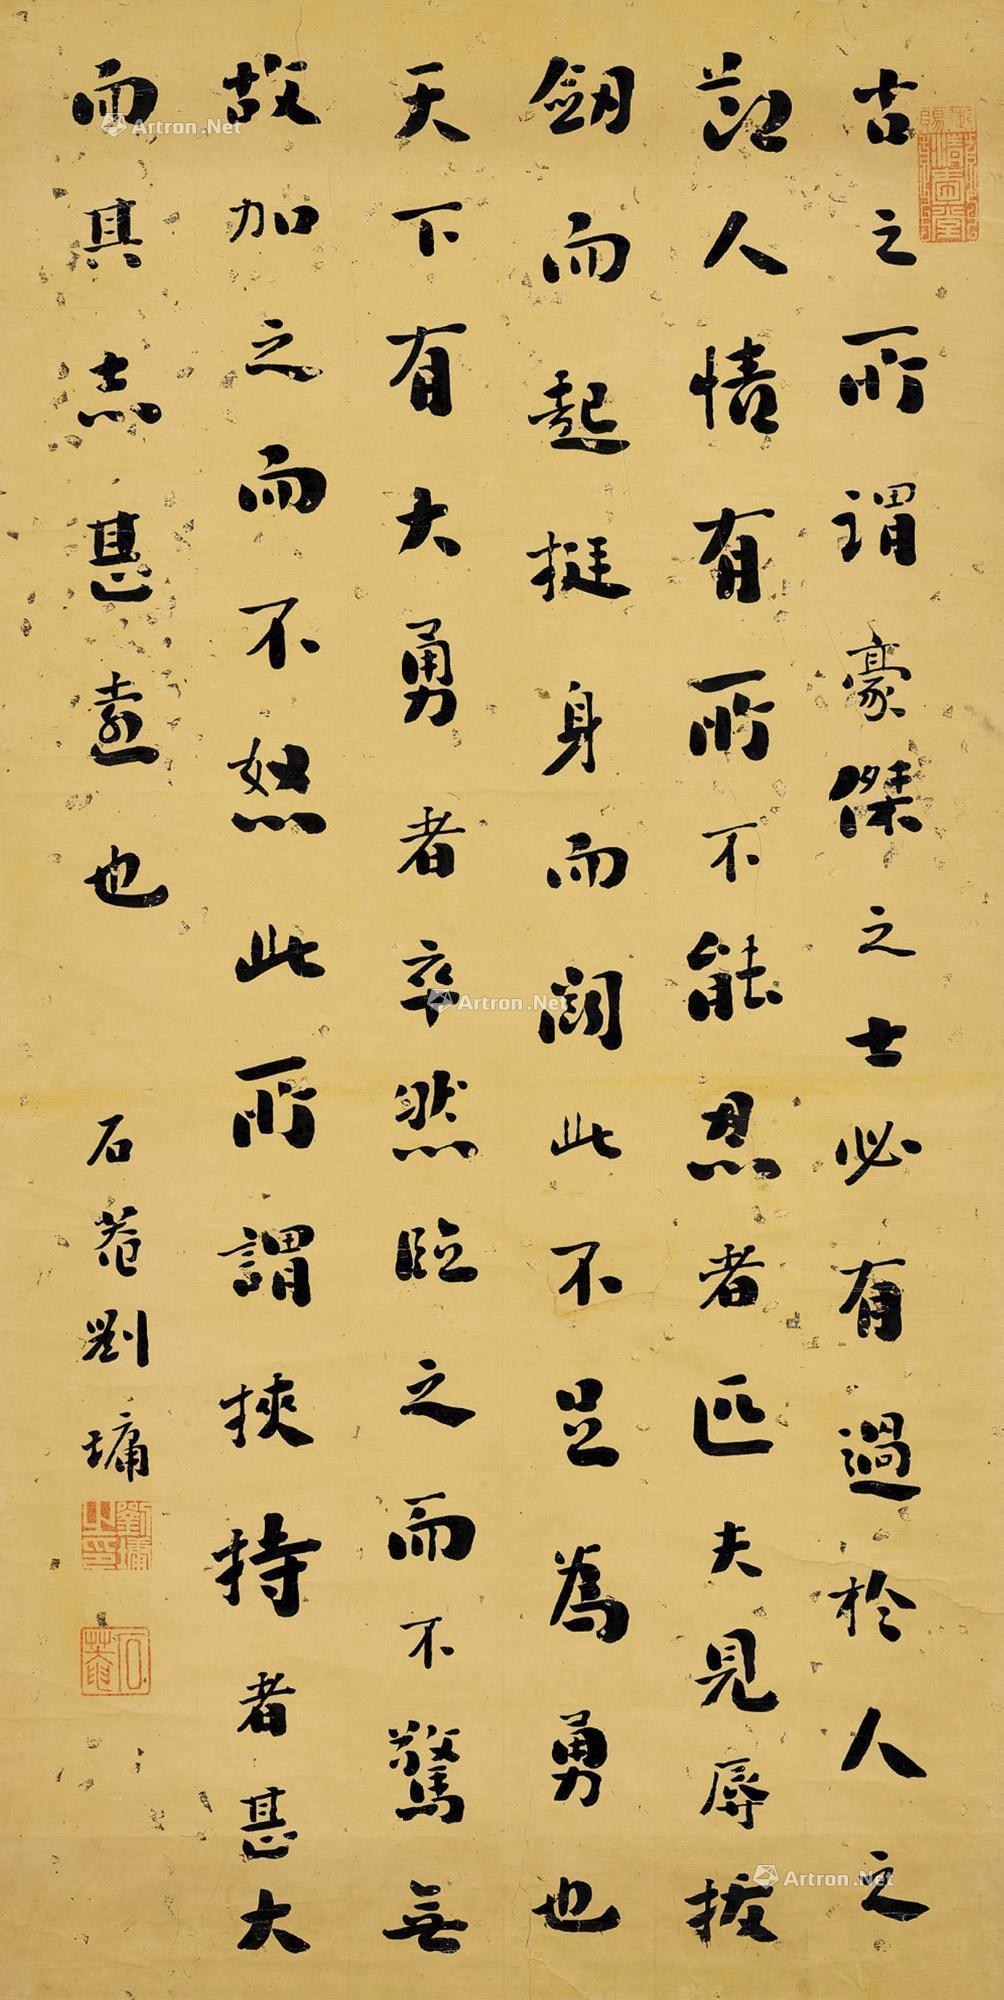 古之所謂豪傑之士必有過於人之
節人情有所不能忍者匹夫見辱拔
劒而起挺身而鬭此不足為勇也
天下有大勇者卒然臨之而不驚無
故加之而不怒此所謂挾持者甚大
而其志甚遠也
石菴劉墉
御賜清愛堂
劉墉之印
石菴
Artron.Net
Artron.Net
Artron.Net